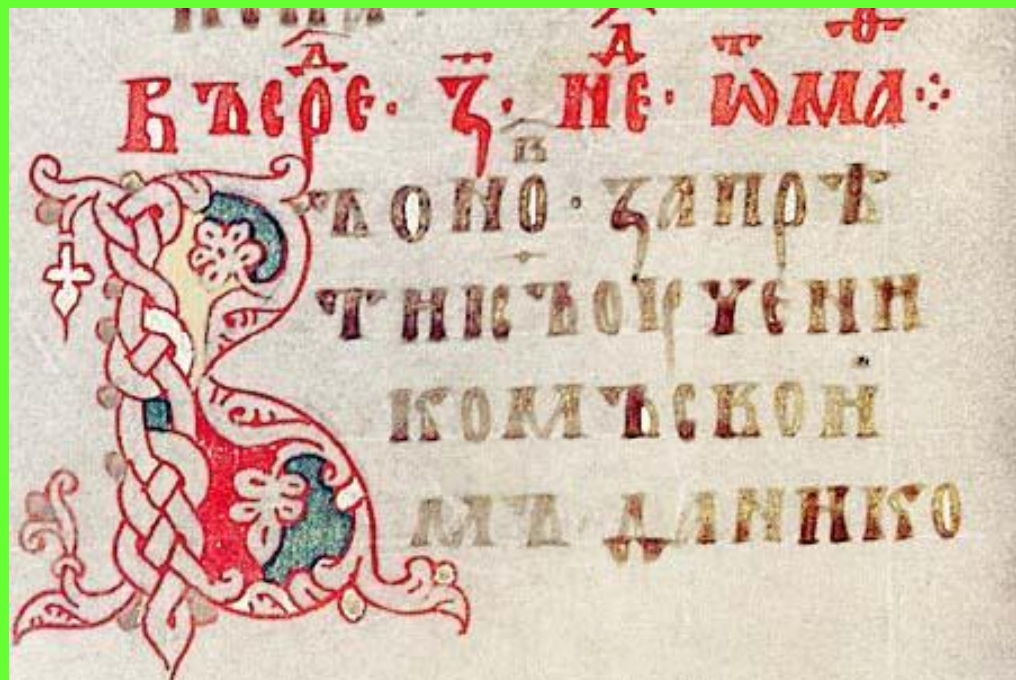 ВЪ СРЕⷣ · З҃ · НЕⷣ · Ѿ МАⷴ ⁘
ВЪ ОНОⷡ · ЗАПРѢ
ТИ ІСЪ ОУЧЕНИ
КОМЪ СВОИ
МЪ ДА НИКО